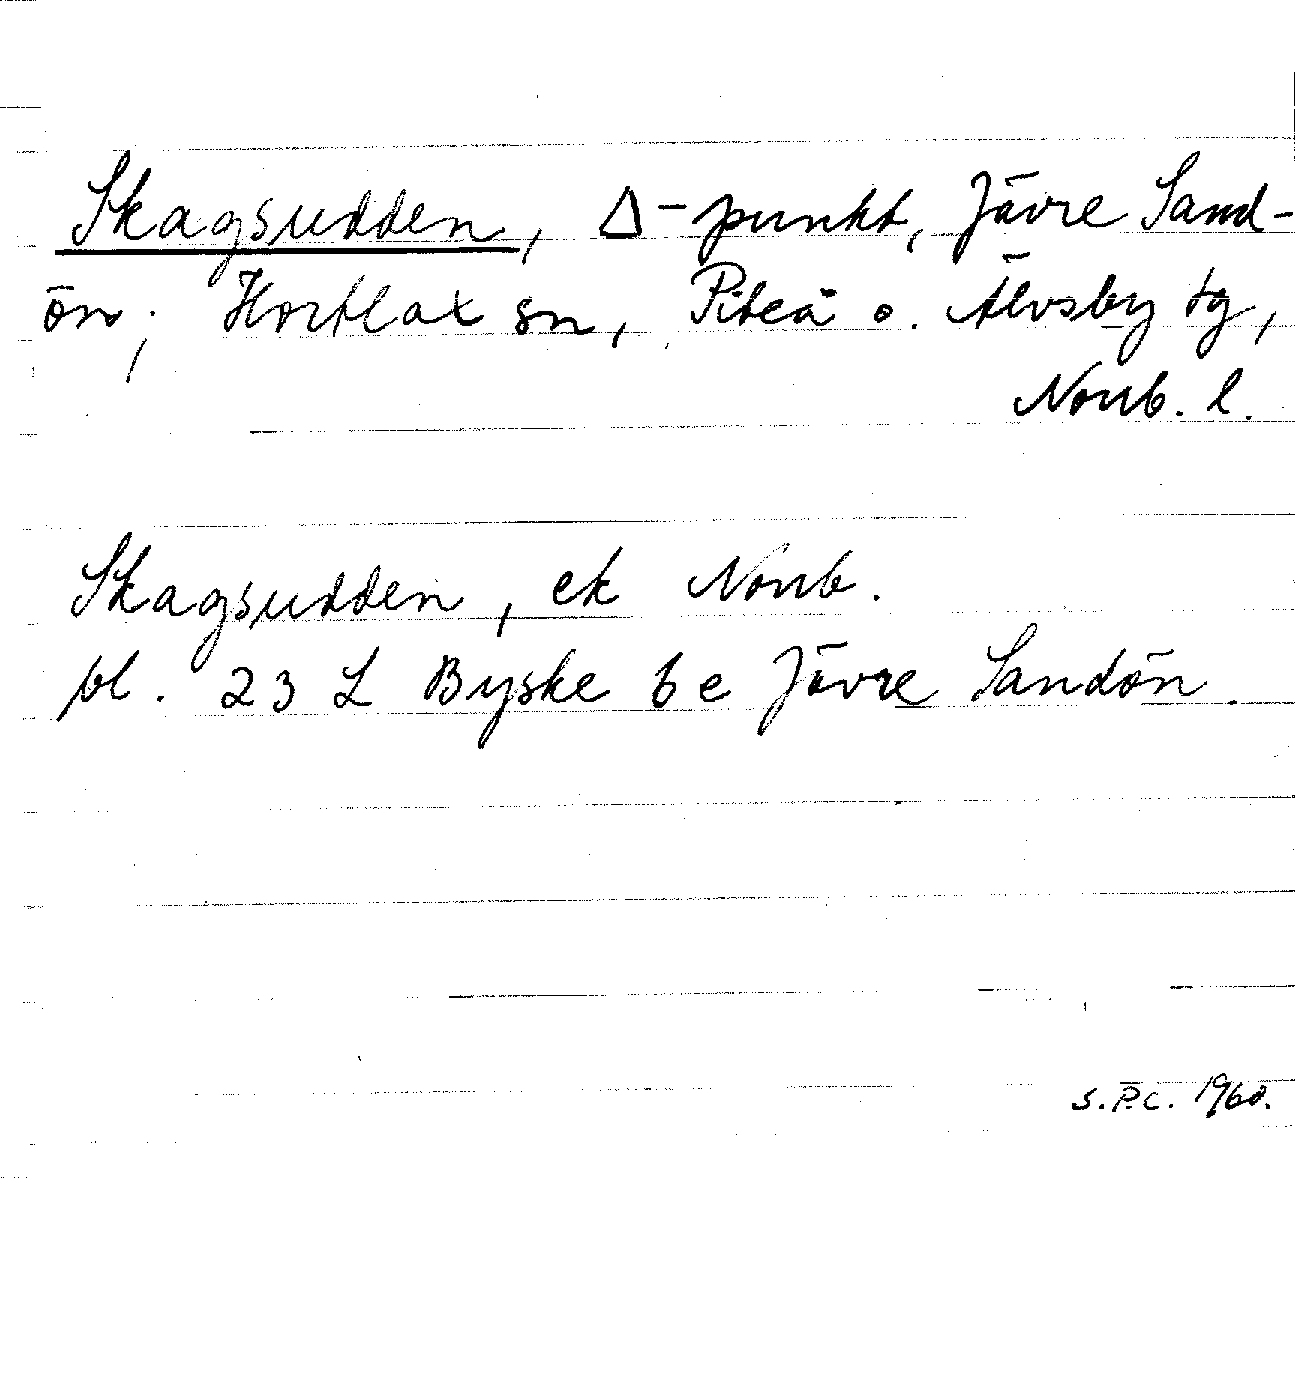 Skagsudden, Δ-punkt, Jävre Sand-
ön; Hortlax sn, Piteå o. Älvsby tg,
Norrb. l.
Skagsudden, ek Norrb.
bl. 23 L Byske 6e Jävre Sandön.
S.P.C. 1960.